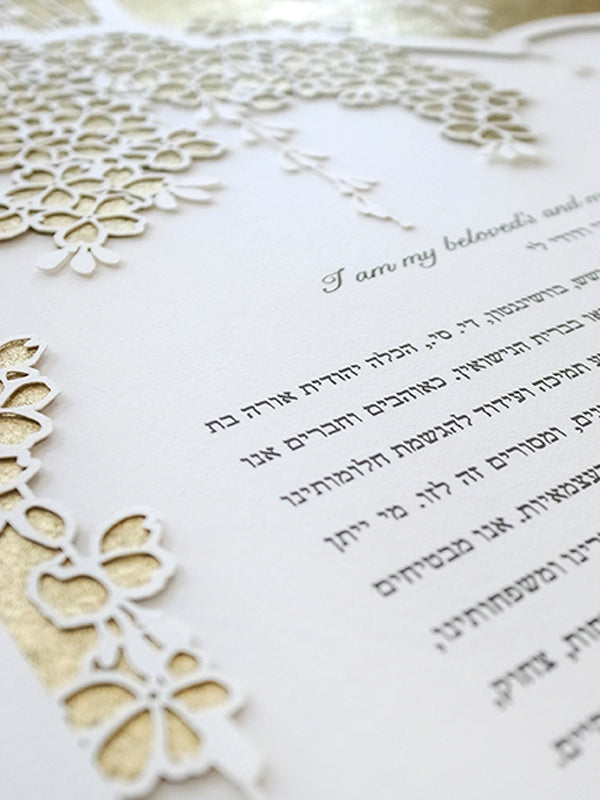 I am my beloved's and m
ודודי לי
שש, בוושינגטון, די. סי., הכלה יהודית אורה בת
בברית הנישואין. כאוהבים וחברים אנו
תמיכה ועידוד להגשמת חלומותינו
ומסורים זה לזו. מי ייתן
עצמאיות. אנו מבטיחים
ומשפחותינו,
צחוק,